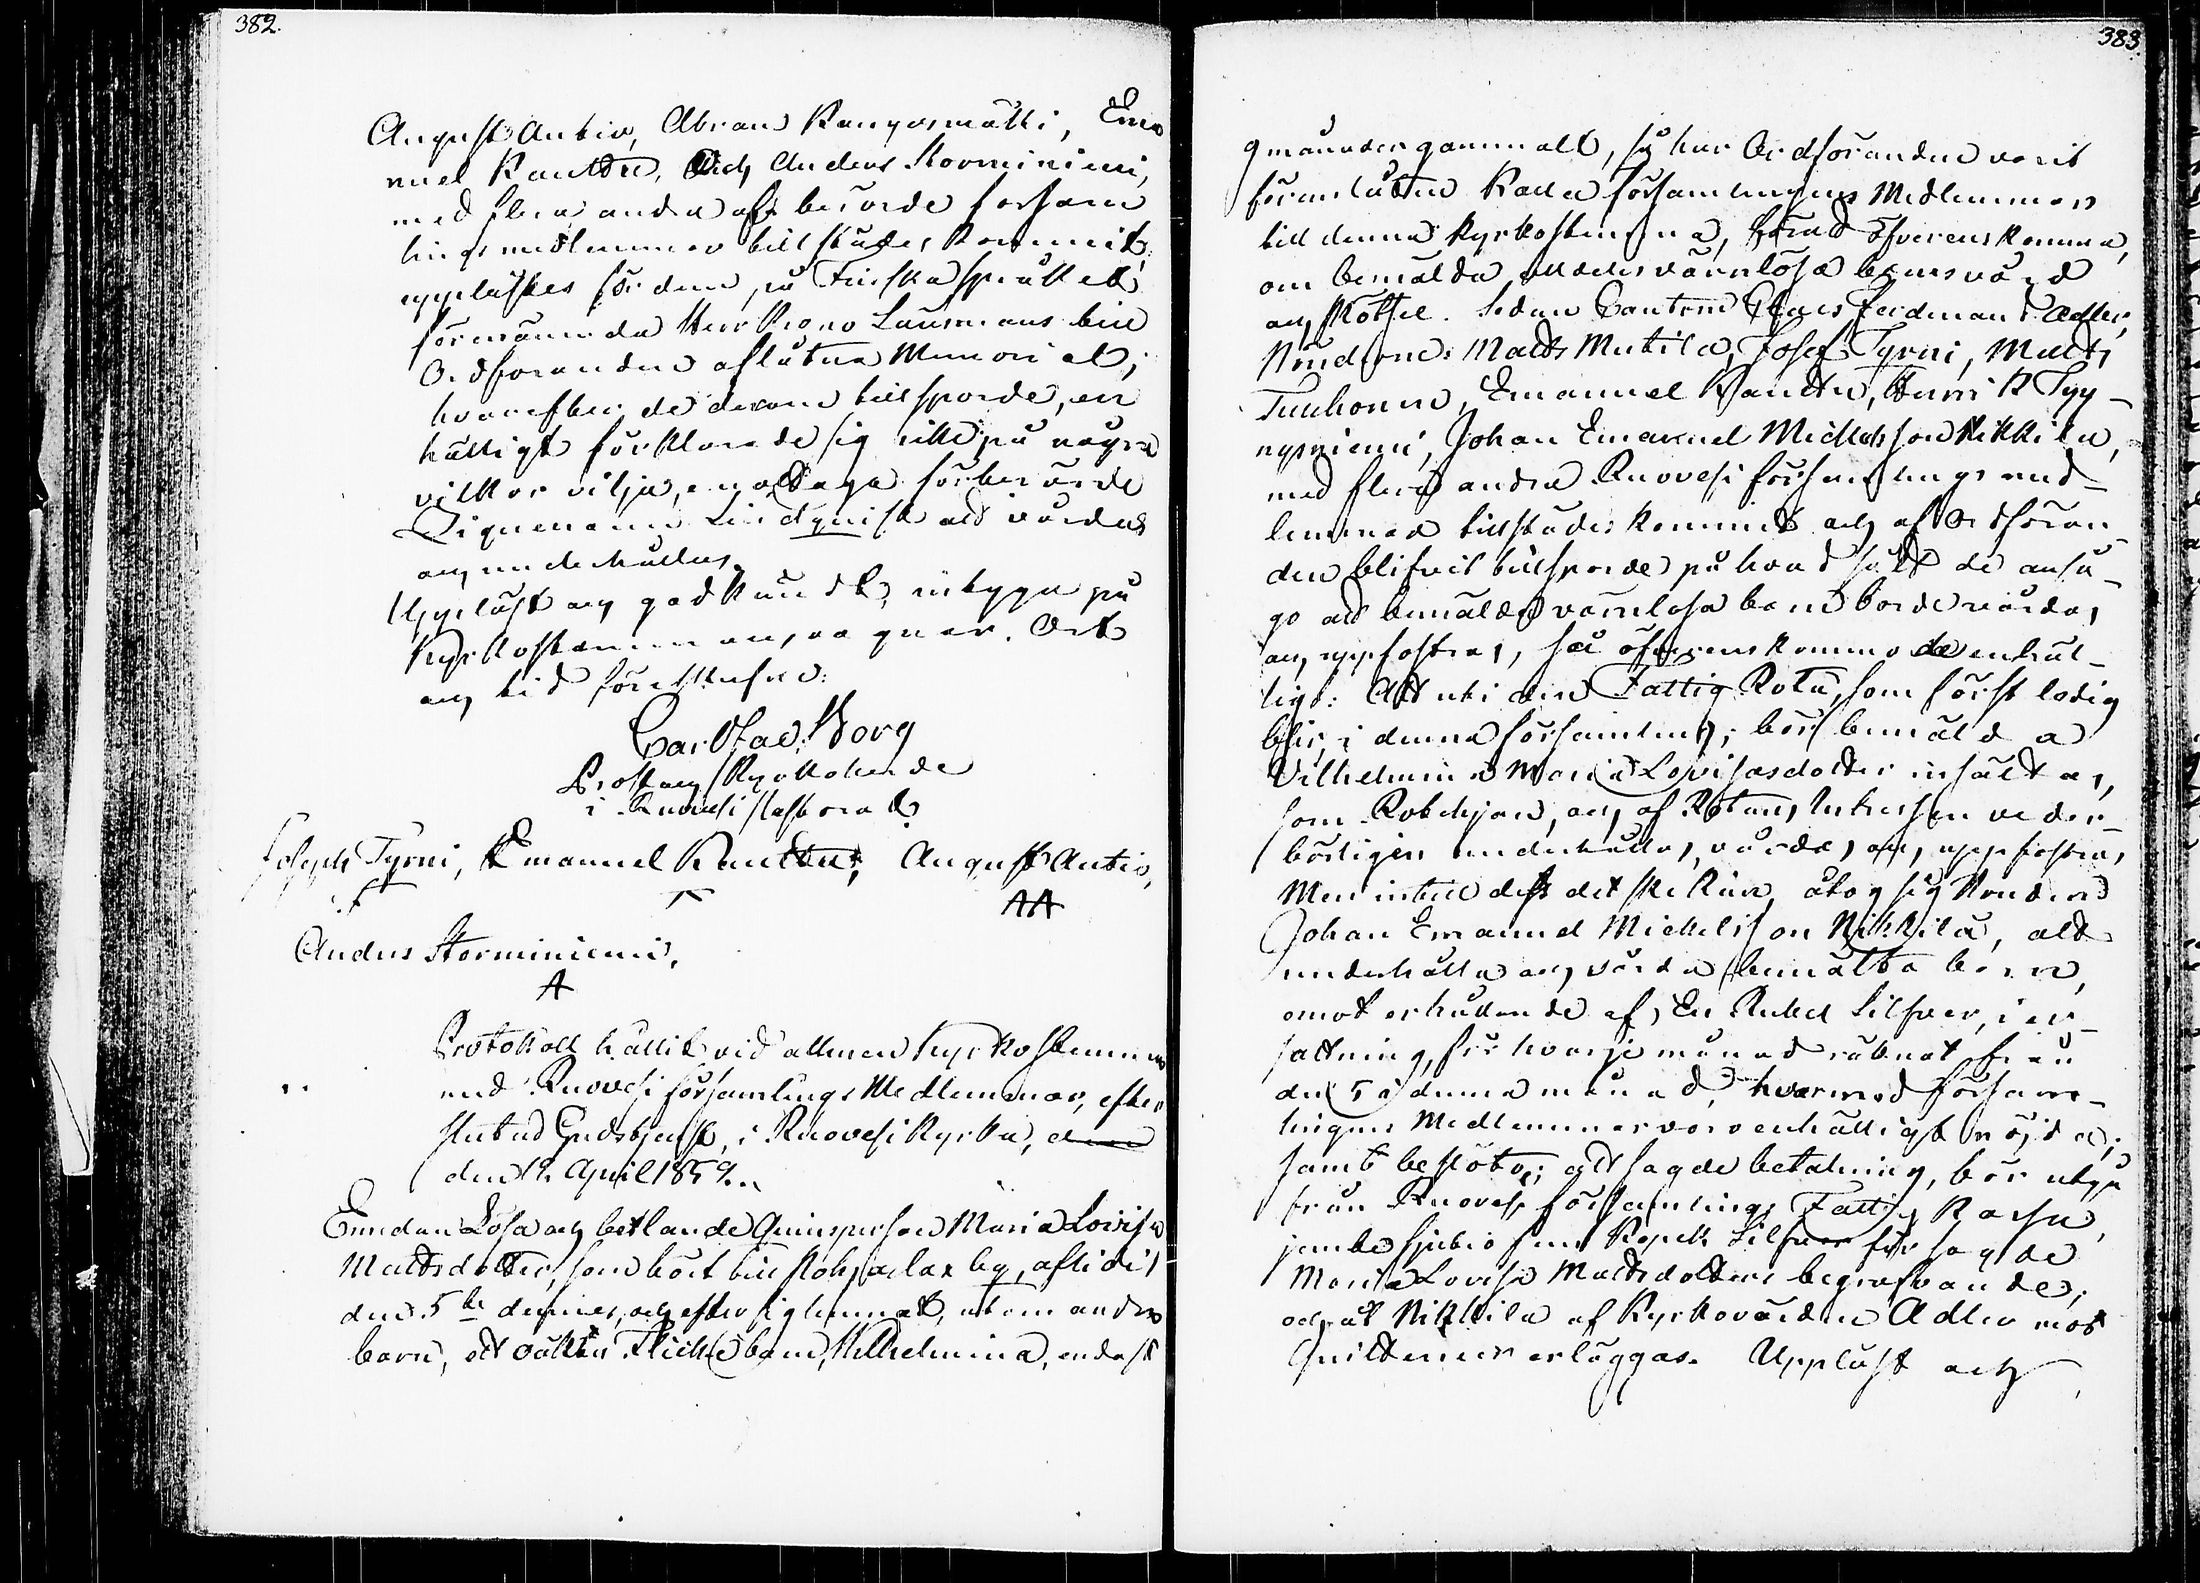 382.
August Antio, Abram Kangasmäkki, Ema
nuel Rauttu, Och Anders Storminiemi,
med flera andra af berörde försam
lings medlemmar tillstädes kommit,
upplästes för dem, på Finska språket
förenämnda Herr Krono Länsmans till
Ordföranden aflåtna Memorial;
hvarefter de derom tillsporde, en
hälligt förklarade sig icke på några
vilkor vilja, emottaga förberörde
Lindqvist att vårdas
och underhållas.
Uppläst och godkändt, intyga på
Kyrkostämmans vägnar. Ort
och tid förutskrefne:
Carl Stac. Borg
Prost och Kyrkoherde
i Ruovesi Pastorat.
Joseph Tyrni, Emanuel Rauttu, August Antio,
AA
Anders Storminiemi,
A
Protokoll hållit vid allmän Kyrkostämma
med Ruovesi församlings Medlemmar, efter
slutad Gudstjenst, i Ruovesi Kyrka,
den 12 April 1859.
Enedan Lösa och betlande Qvinsperson Maria Lovisa
Mattsdotter, som hört till by, aflidit
den 5te dennes, och efter sig lemnat, utom andra
barn, ett oäkta Flicke barn, Wilhelmina, endast
383.
9 månader gammalt, så har Ordföranden varit
föranlåten kalla församlingens Medlemmar
till denna Kyrkostämma, förat öfverenskomma,
om bemälda alldeles värnlösa barns vård
och skötsel. Sedan Cantorn Claes Ferdinand Adler,
Bönderne: Matts Mutila, Josef Tyrni, Matts
Tuuhonen, Emanuel Rauttu, Henrik Pyy-
nysniemi, Johan Emanuel Michelsson Nikkilä,
med flera andra Ruovesi församlings med-
lemmar tillstädes kommit och af Ordföran
den blifvit tillsporde på hvad sätt de anså-
go att bemälde värnlösa barn borde vårdas
och uppfostras, så öfverenskommo de enhäl-
ligt: Att uti den Fattig Rota, som först ledig
blir, i denna församling, bör bemälda
Vilhelmina Maria Lovisasdotter insättas,
som Rotehjon, och af Rotans Intressen veder-
börligen underhållas, vårdas och, uppfostras,
Men intill dess det ske kan, åtog sig Bonden
Johan Emanuel Michelsson Nikkilä, att
underhålla och vårda bemälta barn,
emot erhållande af, En Rubel Silfver, i er-
sättning, för hvarje månad räknat från
den 5 i denna månad, hvarmed försam-
lingens Medlemmar voro enhälligt nöjda;
samt beslöto; att sagde betalning, bör utgå
från Ruovesi församlings Fattig Kassa,
jemte sjutio fem Kopek Silfver för sagde
Maria Lovisa Mattsdotters begrafvande,
och åt Nikkilä af Kyrkovärden Adler mot
Quittencer erläggas. Uppläst och